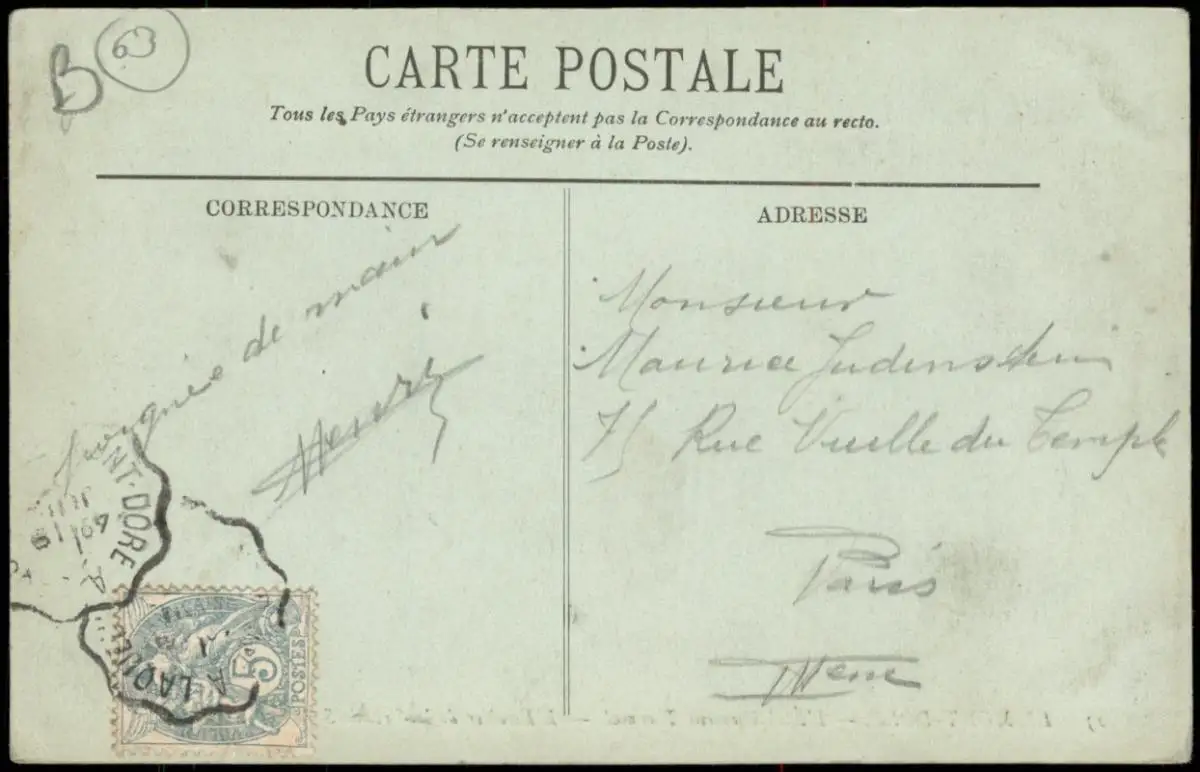 B 63
CARTE POSTALE
Tous les Pays étrangers n'acceptent pas la Correspondance au recto.
(Se renseigner à la Poste).
CORRESPONDANCE
ADRESSE
poignée de main
Henri
Monsieur
Maurice
75 Rue Vieille du Temple
Paris
NT-DORE
A LAQUEU
5c
POSTES